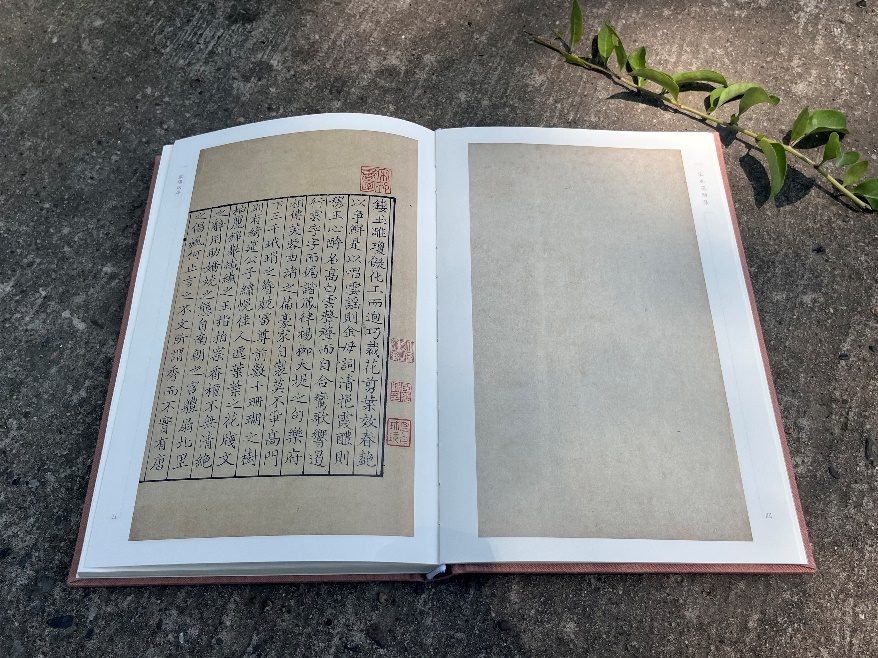 鏤玉雕瓊擬化工而迥巧裁花剪葉效春艷
以爭鮮是以唱雲謠則金母詞清挹霞醴則
穆王心醉名高白雲聲聲而自合鸞歌響遏
行雲字字而偏諧鳳律楊柳大堤之句樂府
相傳芙蓉曲渚之篇豪家自製莫不爭高門
下三千玳瑁之簪競富尊前數十珊瑚之樹
則有綺筵公子繡幌佳人遞葉葉之花牋文
抽麗錦舉纖纖之玉指拍案香檀不無清絕
之辭用助嬌嬈之態自南朝之宮體扇北里
之倡風何止言之不文所謂秀而不實有唐